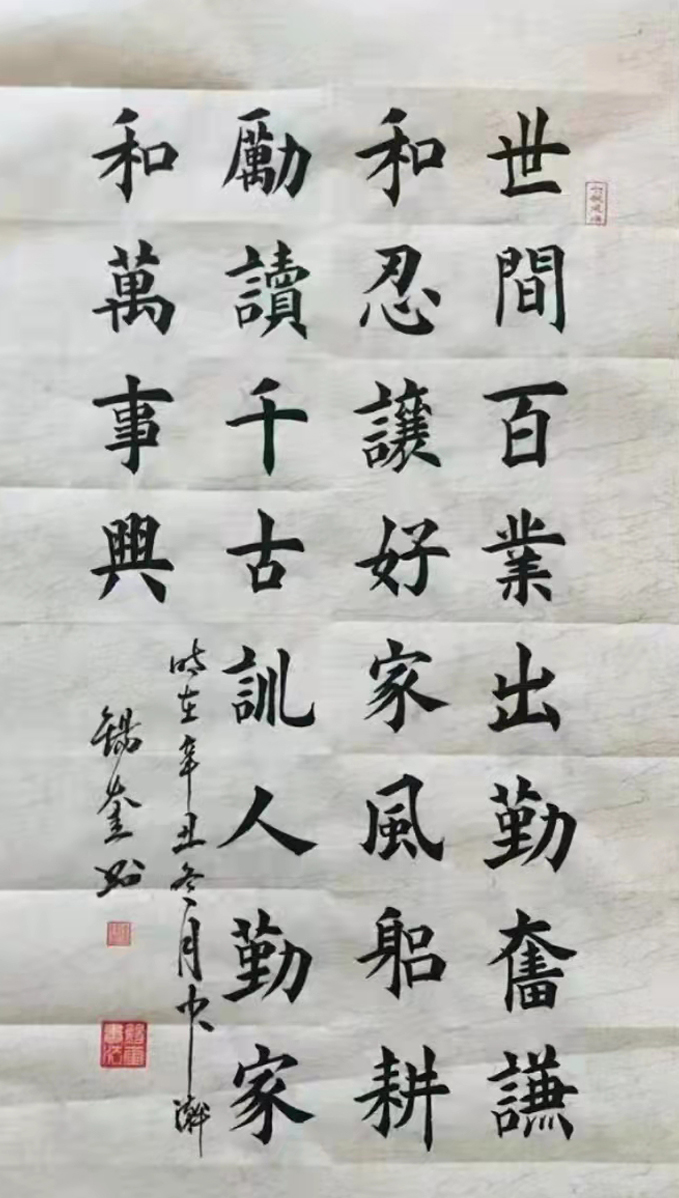 世間百業出勤奮謙
和忍讓好家風躬耕
勵讀千古訓人勤家
和萬事興
時在辛丑冬月中瀚
錫奎書